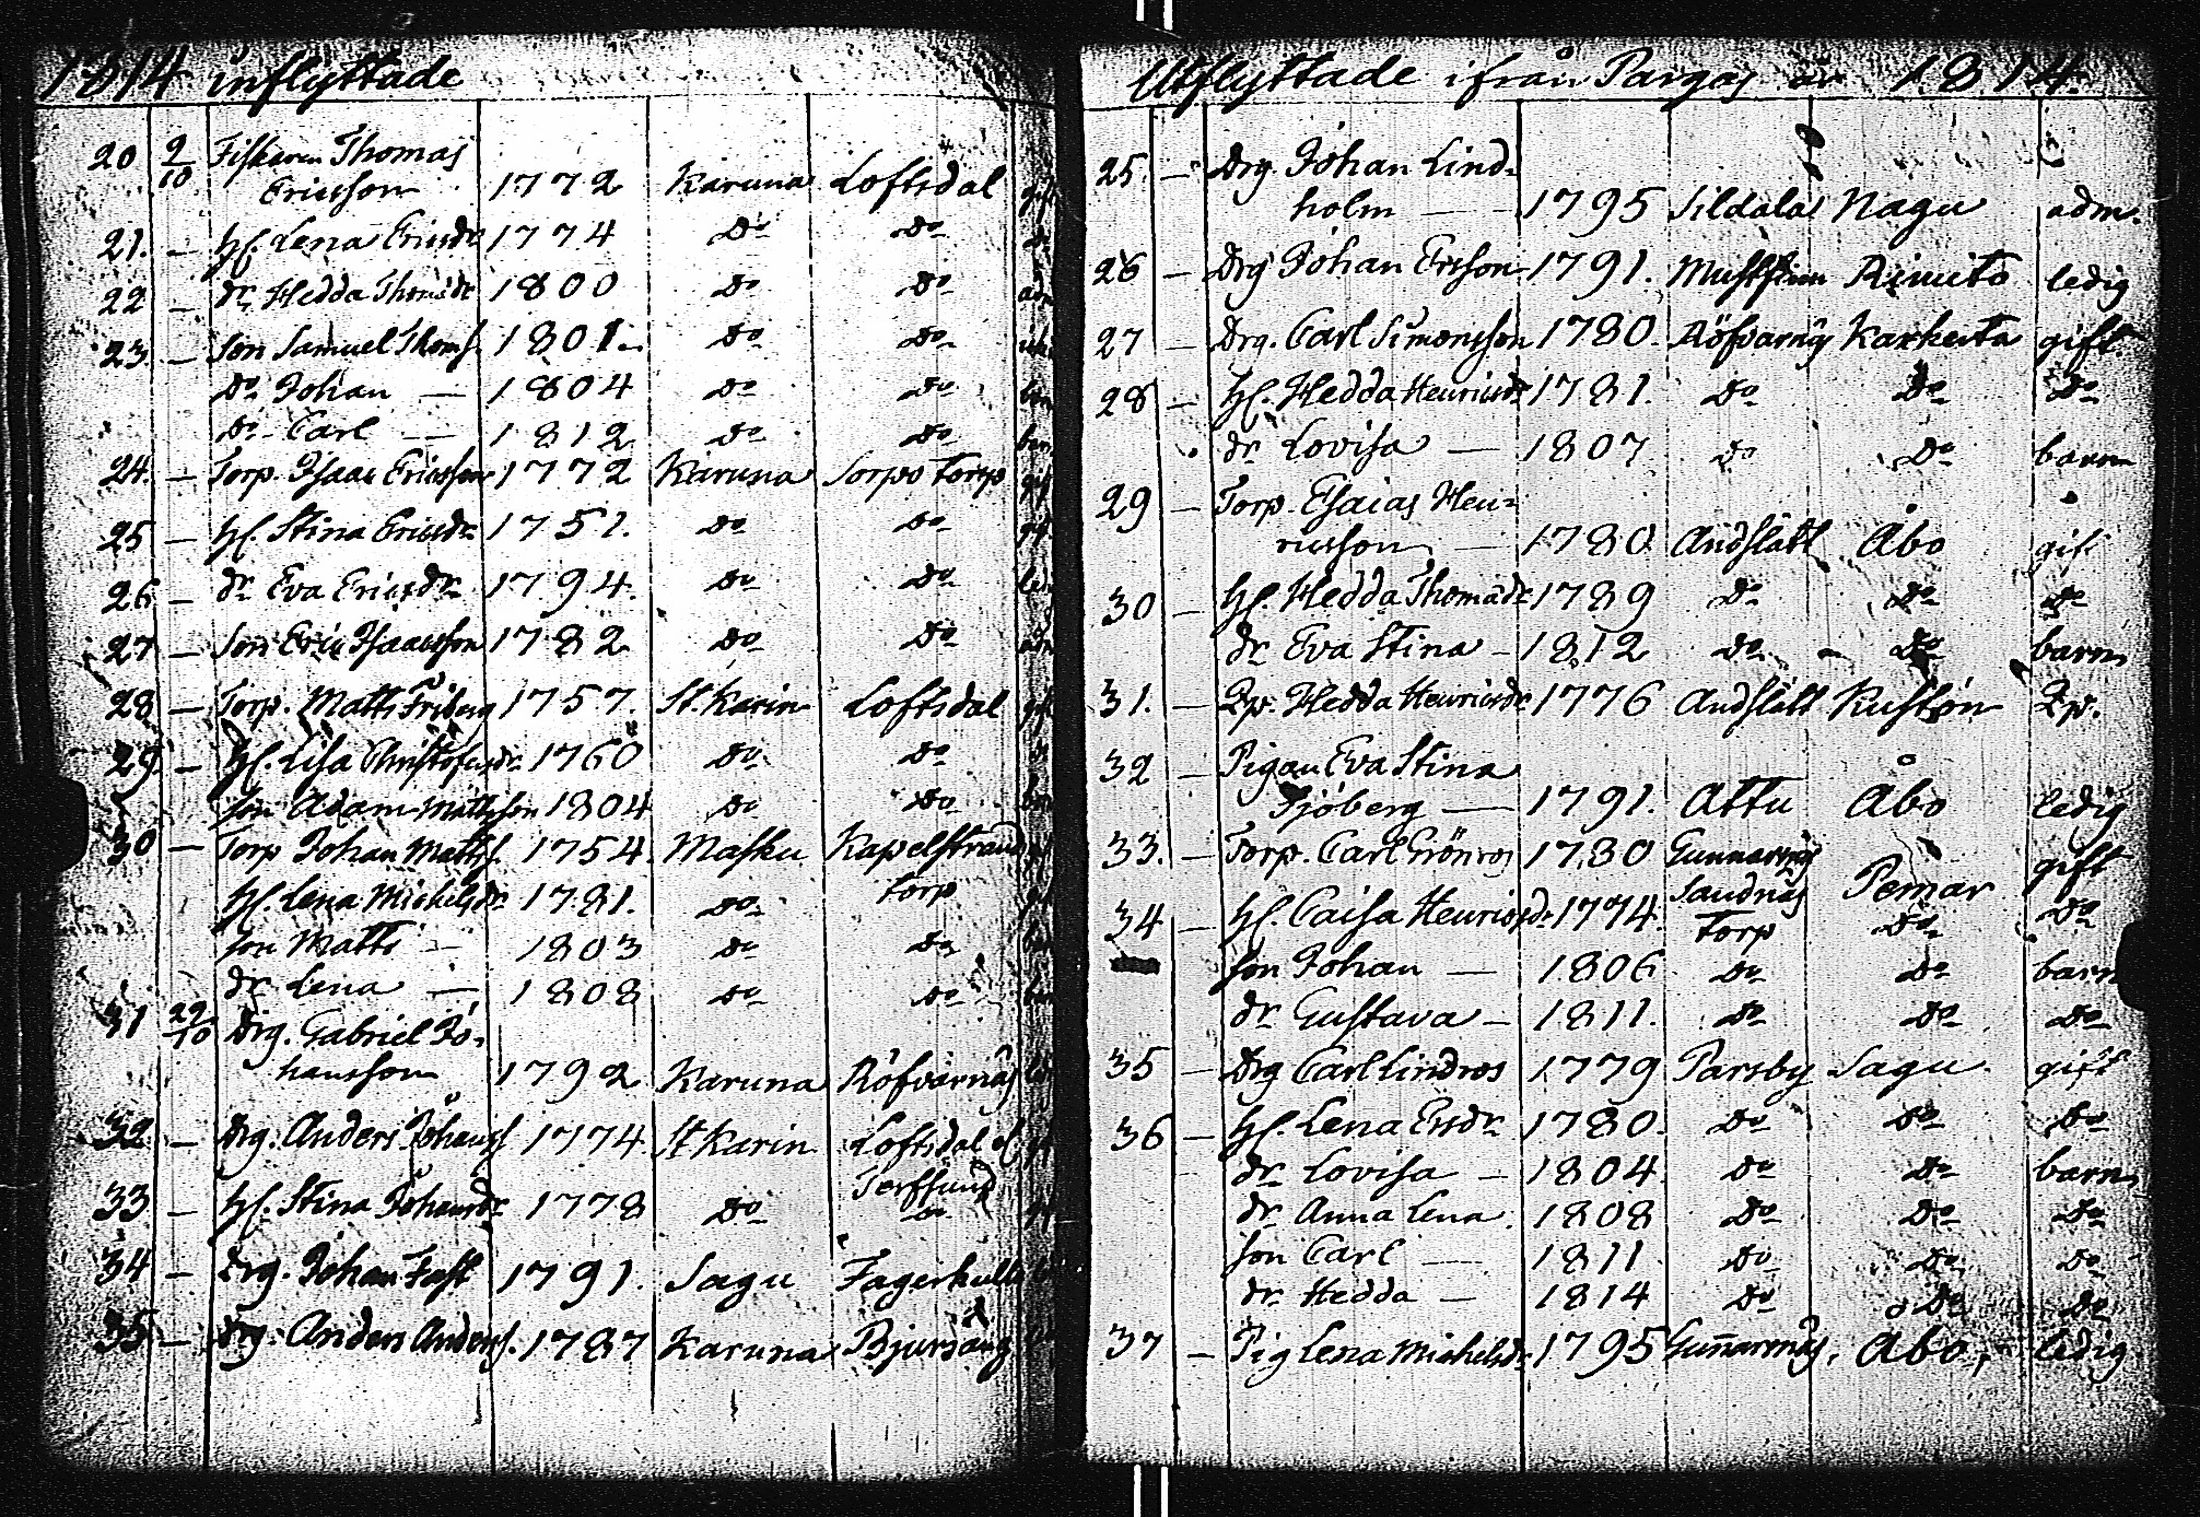 1814 inflyttade
20 9/10 Fiskaren Thomas
Ericsson 1772 Karuna Loftsdal gift
21. — Hf. Lena Ericsdr 1774 Do Do Do
22 — dr Hedda Thomsdr 1800 Do Do adm
23. — Son Samuel Thoms. 1801. Do Do
Do Johan — 1804 Do Do barn
Do Carl — 1812 Do Do barn
24. — Torp. Isaac Ericsson 1772 Karuna Sorpo torp gift
25 — Hf. Stina Ericsdr 1751. Do Do gift
26 — dr Eva Ericsdr 1794. Do Do ledig
27 — Son Eric Isaacsson 1782 Do Do adm
28 — Torp. Matts Friberg 1757. St. Karin Loftsdal gift
29. — Hf. Lisa Christofersdr 1760 Do Do Do
Son Adam Mattsson 1804 Do Do barn
30 — Torp Johan Mattss. 1754. Masku Kapelstrand gift
Hf. Lena Michelsdr 1781. Do torp
Son Matts — 1803 Do Do barn
dr Lena — 1808 Do Do barn
31 29/10 Drg. Gabriel Jo-
hansson 1792 Karuna Röfvarnäs
32 — Drg. Anders Johanss 1774 St Karin Loftsdal el
Terfsund
33 — Hf. Stina Johansdr 1778 Do Do
34 — Drg. Johan Fast 1791. Sagu Fagerkulla
35 — Drg. Anders Anderss. 1787 Karuna Bjursäng
Utflyttade ifrån Pargas år 1814.
25. — Drg. Johan Lind-
holm — 1795 Sildala Nagu adm.
26 — Drg Johan Ersson 1791. Mustfinn Rimito ledig
27 — Drg. Carl Simonsson 1780. Röfvarnäs Karkerta gift
28 — Hf. Hedda Henricsdr 1781. Do Do Do
dr Lovisa — 1807 Do Do barn
29 — Torp. Esaias Hen-
ricsson — 1780 Andslätt Åbo gift
30 — Hf. Hedda Thomadr 1789 Do Do Do
dr Eva Stina — 1812 Do Do barn
31. — Qp. Hedda Henricsdr 1776 Andslätt Kustön Qp.
32 — Pigan Eva Stina
Sjöberg — 1791. Attu Åbo ledig
33. — Torp. Carl Grönros 1780 Gunnarnäs gift
34 — Hf. Caisa Henricsdr 1774. Sandnäs Pemar
torp Do Do
Son Johan — 1806 Do Do barn
dr Gustava — 1811. Do Do Do
35 — Drg Carl Lindros 1779 Parsby Sagu gift
36 — Hf. Lena Ersdr 1780. Do Do Do
dr Lovisa — 1804 Do Do barn
dr Anna Lena 1808 Do Do Do
Son Carl — 1811 Do Do Do
dr Hedda — 1814 Do Do Do
37 — Pig Lena Michelsdr 1795 Gunnarnäs, Åbo, ledig